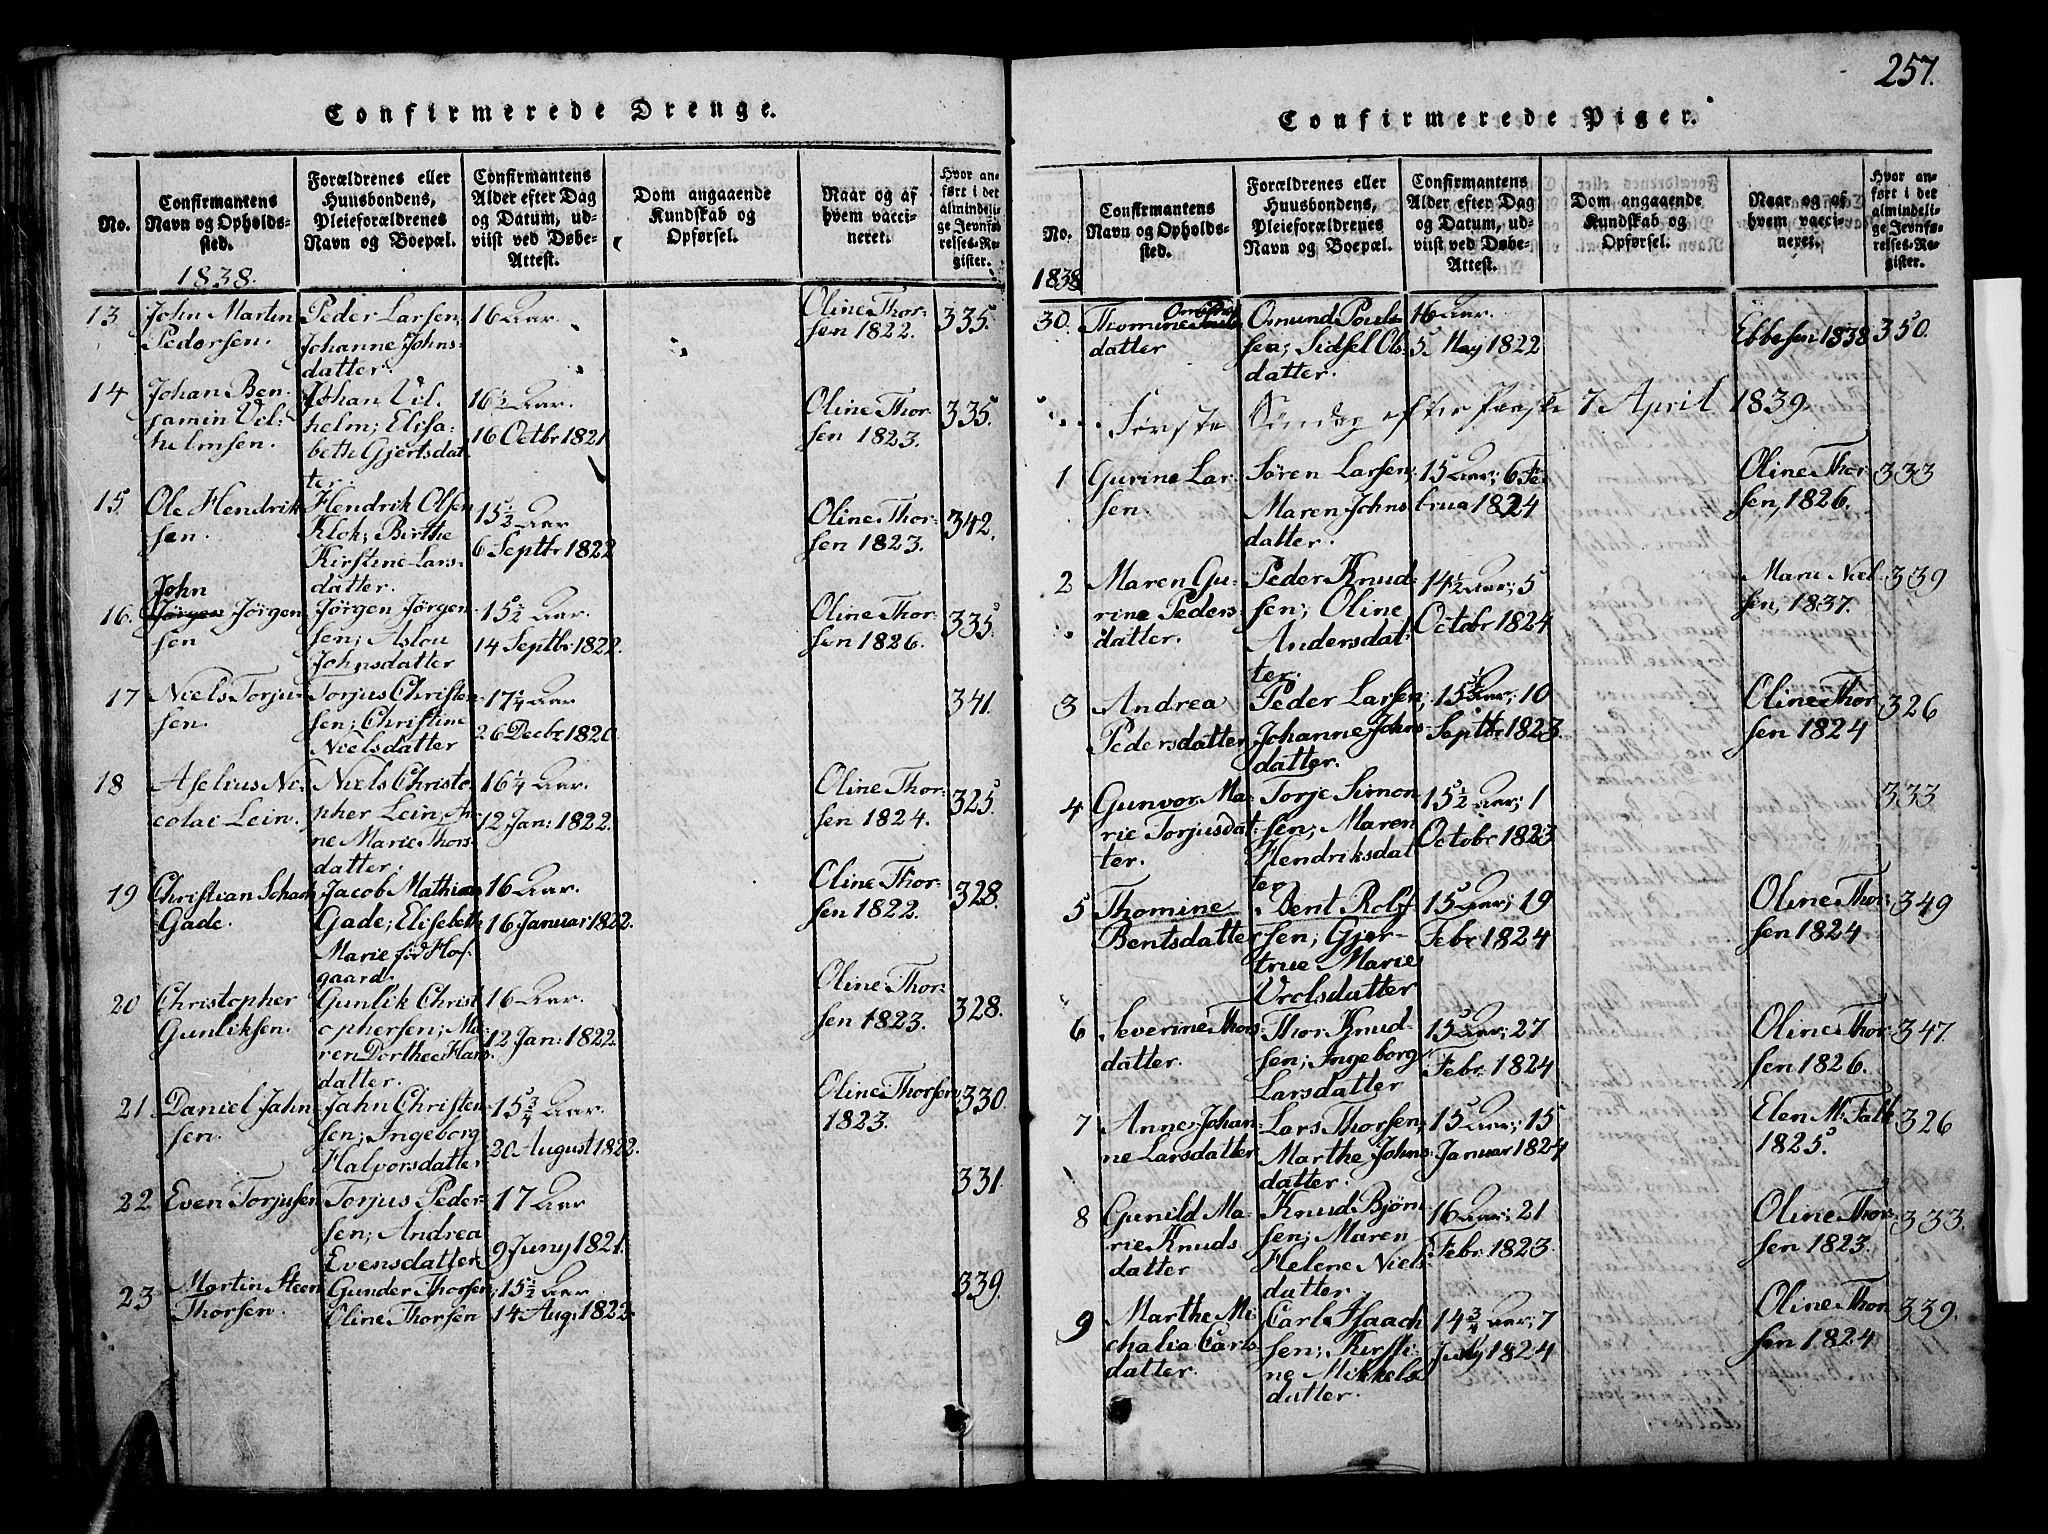 257.
Confirmerede Drenge.
No.
Confirmantens
Navn og Opholds-
sted.
1838.
Forældrenes eller
Huusbondens,
Pleieforældrenes
Navn og Boepæl.
Confirmantens
Alder efter Dag
og Datum, ud-
viist ved Døbe-
Attest.
Dom angaaende
Kundskab og
Opførsel.
Naar og af
hvem vacci-
neret.
Hvor an-
ført i det
almindeli-
ge Jevnfø-
relses-Re-
gister.
13
John Martin
Pedersen.
Peder Larsen;
Johanne Johns-
datter.
16 Aar.
Oline Thor-
sen 1822.
335.
14
Johan Ben-
jamin Vil-
helmsen.
Johan Vil-
helm; Elisa-
beth Gjertsdat-
ter.
16½ Aar.
16 Octbr 1821
Oline Thor-
sen 1823.
335.
15
Ole Hendrik
sen.
Hendrik Olsen
Klok; Birthe
Kirstine Lars-
datter.
15½ Aar
6 Septbr 1822
Oline Thor-
sen 1823.
342.
16.
John
Jørgen Jørgen-
sen
Jørgen Jørgen-
sen; Aslou
Johnsdatter
15½ Aar.
14 Septbr 1822.
Oline Thor-
sen 1826.
335.
17
Niels Torju-
sen.
Torjus Christen-
sen; Christine
Nielsdatter
17¼ Aar
26 Decbr 1820
341.
18
Aselius Ni-
colai Lein.
Niels Christo-
pher Lein; An-
ne Marie Thors-
datter.
16¼ Aar.
12 Jan: 1822.
Oline Thor-
sen 1824.
325.
19
Christian Schach
Gade.
Jacob Mathias
Gade; Elisebeth
Marie fød Hof-
gaard
16 Aar.
16 Januar 1822.
Oline Thor-
sen 1822.
328.
20
Christopher
Gunliksen.
Gunlik Christ
ophersen; Ma-
ren Dorthee Hans-
datter.
16 Aar.
12 Jan: 1822.
Oline Thor-
sen 1823.
328.
21
Daniel Jahn
sen.
Jahn Christen-
sen; Ingeborg
Halvorsdatter
15¾ Aar.
20 August 1822.
Oline Thorsen
1823.
330.
22
Even Torjusen
Torjus Peder-
sen; Andrea
Evensdatter
17 Aar
9 Juny 1821.
331
23
Martin Steen
Thorsen.
Gunder Thorsen;
Oline Thorsen
15½ Aar
14 Aug: 1822.
339.
Confirmerede Piger.
No.
1838
Confirmantens
Navn og Opholds-
sted.
Forældrenes eller
Huusbondens,
Pleieforældrenes
Navn og Boepæl.
Confirmantens
Alder efter Dag
og Datum, ud-
viist ved Døbe-
Attest.
Dom angaaende
Kundskab og
Opførsel.
Naar og af
hvem vacci-
neret.
Hvor an-
ført i det
almindeli-
ge Jevnfø-
relses-Re-
gister.
30.
Thomine
datter
Osmund Pouls-
sen; Sidsel Ols-
datter.
16 Aar.
5 May 1822
Ebbesen 1838
350.
Første Søndag efter Paaske 7 April 1839
1
Gurine Lar-
sen.
Søren Larsen;
Maren Johns
datter.
15 Aar; 6 Fe-
brua 1824
Oline Thor-
sen, 1826.
333
2
Maren Gu-
rine Peders-
datter.
Peder Knud-
sen; Oline
Andersdat-
ter.
14½ Aar; 5
Octobr 1824
Maru Niel-
sen, 1837.
339
3
Andrea
Pedersdatter
Peder Larsen;
Johanne Johns
datter.
15½ Aar; 10
Septbr 1823.
Oline Thor-
sen 1824
326
4
Gunvor Ma-
rie Torjusdat-
ter.
Torje Simon
sen; Maren
Hendriksdat
ter
15½ Aar; 1
Octobr 1823
333
5
Thomine
Bentsdatter
Bent Rolf
sen; Gjer-
true Marie
Vrolsdatter
15 Aar; 19
Febr 1824
Oline Thor-
sen 1824
349
6
Severine Thors-
datter.
Thor Knud-
sen; Ingeborg
Larsdatter
15 Aar; 27
Febr. 1824
Oline Thor-
sen 1826.
347.
7
Anne Johan-
ne Larsdatter
Lars Thorsen;
Marthe Johns-
datter.
15 Aar; 15
Januar 1824
Elen M. Falk
1825.
326
8
Gunild Ma-
rie Knuds
datter
Knud Bjørn
sen; Maren
Helene Niels-
datter.
16 Aar; 21
Febr. 1823.
Oline Thor-
sen 1823.
333.
9
Marthe Mi-
chalia Carls-
datter.
Carl Isaach
sen; Kirsti-
ne Mikkels
datter.
14¾ Aar; 7
July 1824
Oline Thor
sen 1824
339.